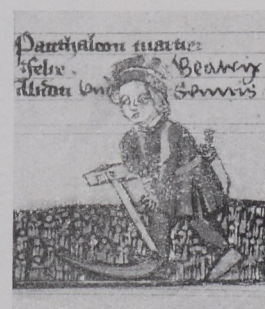 Panthaleon martier
Felix. Beatrix
Abdon Sennis